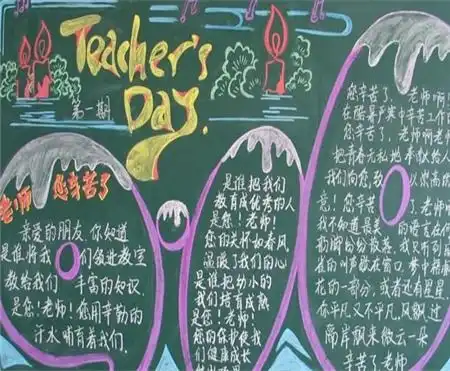 Teacher's
Day.
第一期
老师 您辛苦了
亲爱的朋友,你知道
是谁将我们领进教室
教给我们 丰富的知识
是您!老师!您用辛勤的
汗水哺育着我们.
是谁把我们
教育成优秀的人
是您!老师!
您的关怀如春风
温暖了我们的心
是谁把幼小的
我们培育成熟
是您!老师!
您的保护使我
们健康成长
您辛苦了,老师啊
在酷暑严寒中辛苦工作
您辛苦了,老师啊老师
把青春无私地奉献
我们向您致 以崇高
意!您辛苦了,老师
我不知道最美的语言
花的一部分,或者还有星星
你平凡又不平凡,风飘过
隔岸飘来微云一朵
辛苦了老师